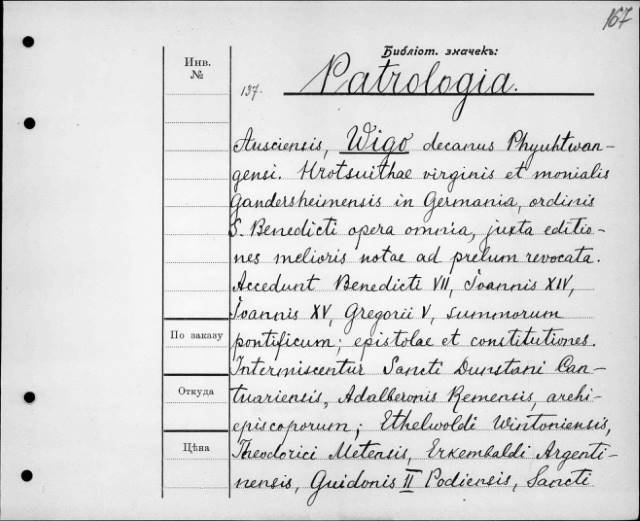 167
Библіот. значекъ:
Инв.
№
137.
Patrologia.
Ausciensis, Wigo decanus Phyuhtwan-
gensi. Hrotsuithae virginis et monialis
Gandersheimensis in Germania, ordinis
S. Benedicti opera omnia, juxta editio-
nes melioris notae ad prelum revocata.
Accedunt Benedicti VII, Joannis XIV,
Joannis XV, Gregorii V, summorum
По заказу
pontificum; epistolae et constitutiones.
Intermiscentur Sancti Dunstani Can-
Откуда
tuariensis, Adalberonis Remensis, archi-
episcoporum; Ethelwoldi Wintoniensis,
Цѣна
Theodorici Metensis, Erkembaldi Argenti-
nensis, Guidonis II Podiensis, Sancti